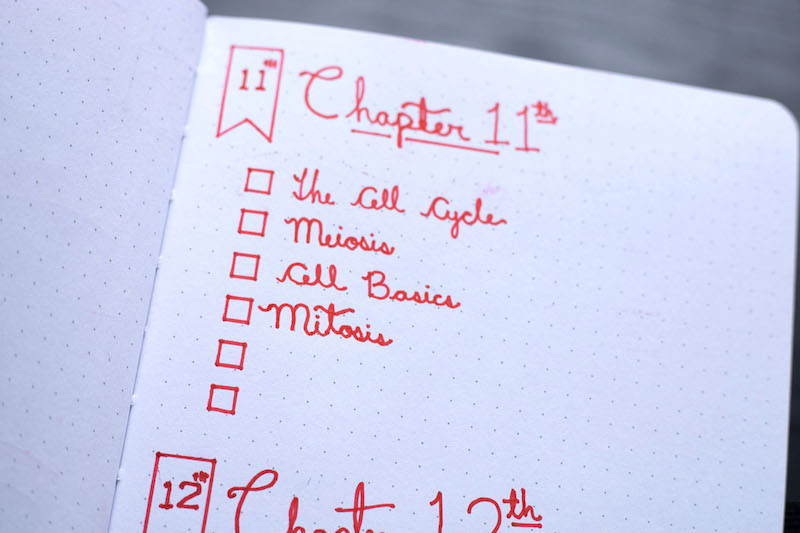 11th
Chapter 11th
The Cell Cycle
Meiosis
Cell Basics
Mitosis
12th
Chapter 12th